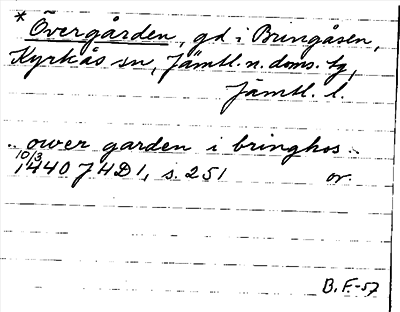 * Övergården, gd i Bringåsen,
Kyrkås sn, Jämtl. n. doms. tg,
Jämtl. l.
.. ower garden i bringhos ..
10/3 1440 JHD 1, s. 251 or.
B. F.-57